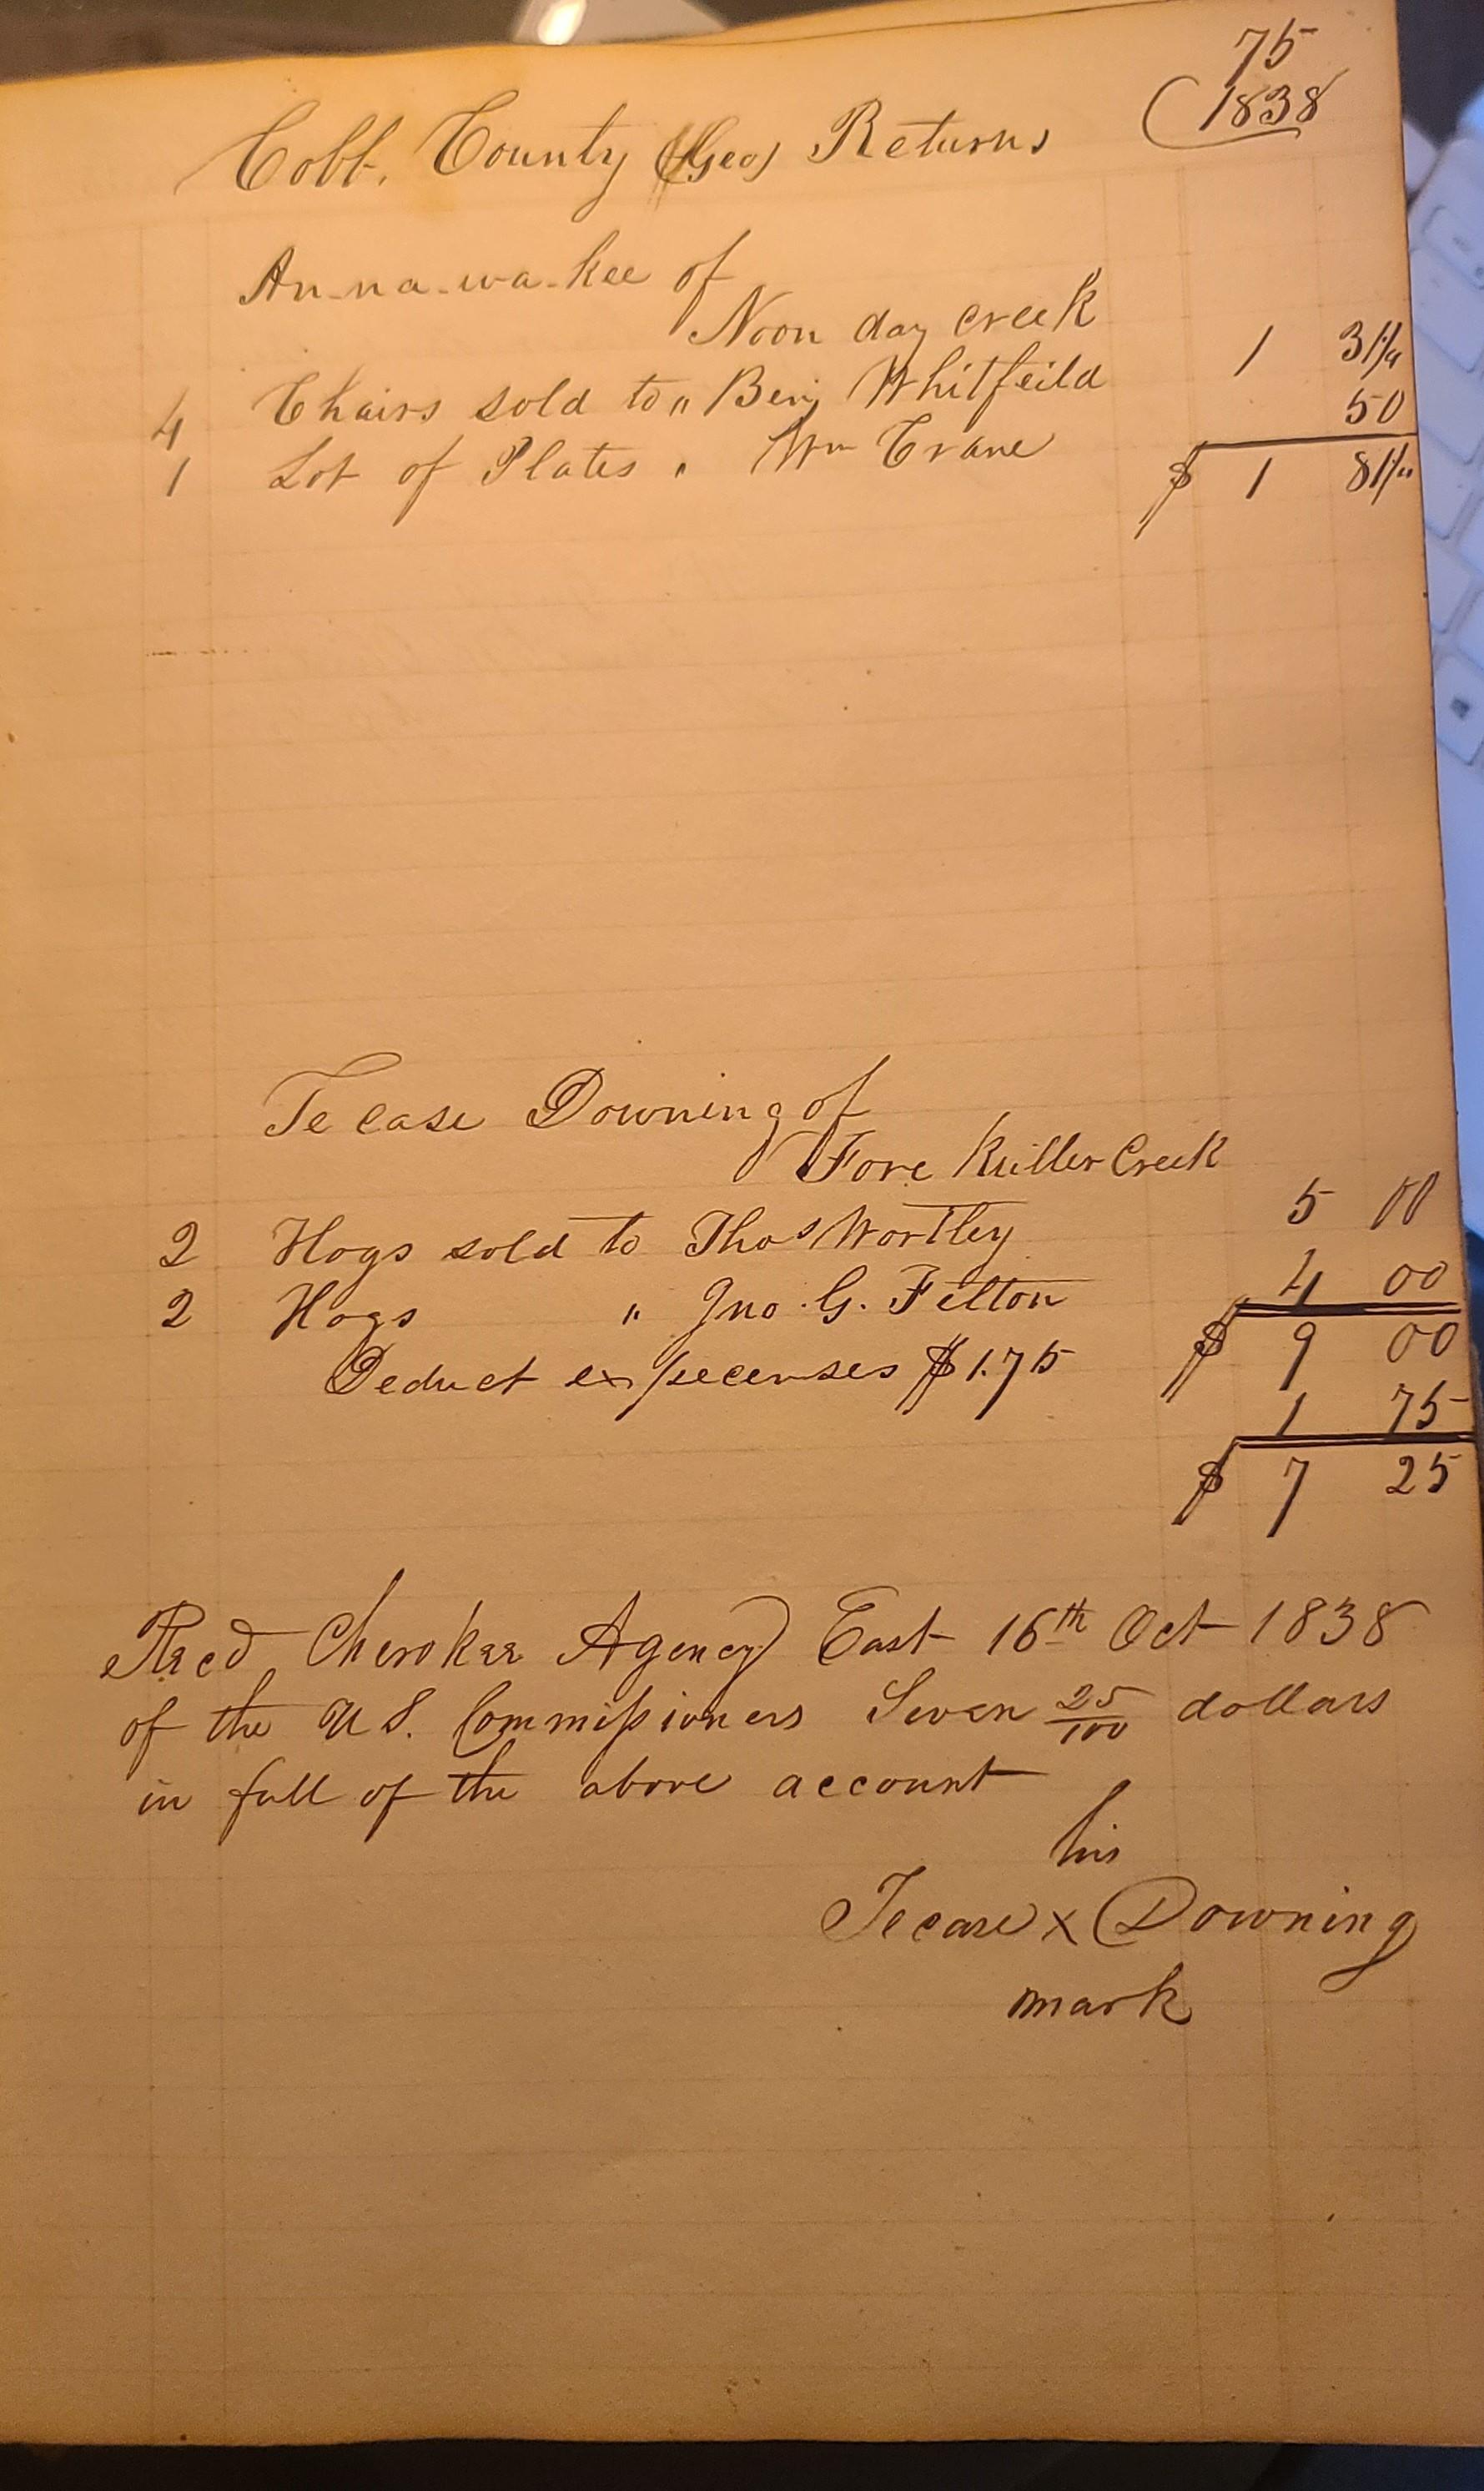 75
1838
Cobb. County (Geo) Returns
An-na-wa-kee of
Noon day creek
4 Chairs sold to " Benj Whitfeild 1 31 1/4
1 Lot of Plates " Wm Crane 50
$ 1 81 1/4
Te case Downing of
Fore Killer Creek
2 Hogs sold to Thos Wortley 5 00
2 Hogs " Jno. G. Felton 4 00
$ 9 00
Deduct expecenses $1.75 1 75
$ 7 25
Recd Cherokee Agency East 16th Oct 1838
of the U S. Commissioners Seven 25/100 dollars
in full of the above account
his
Tecase x Downing
mark